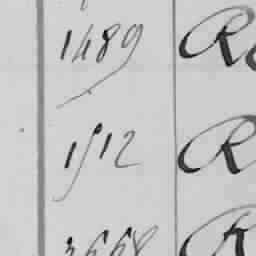 1489 R
1512 R
3668 R